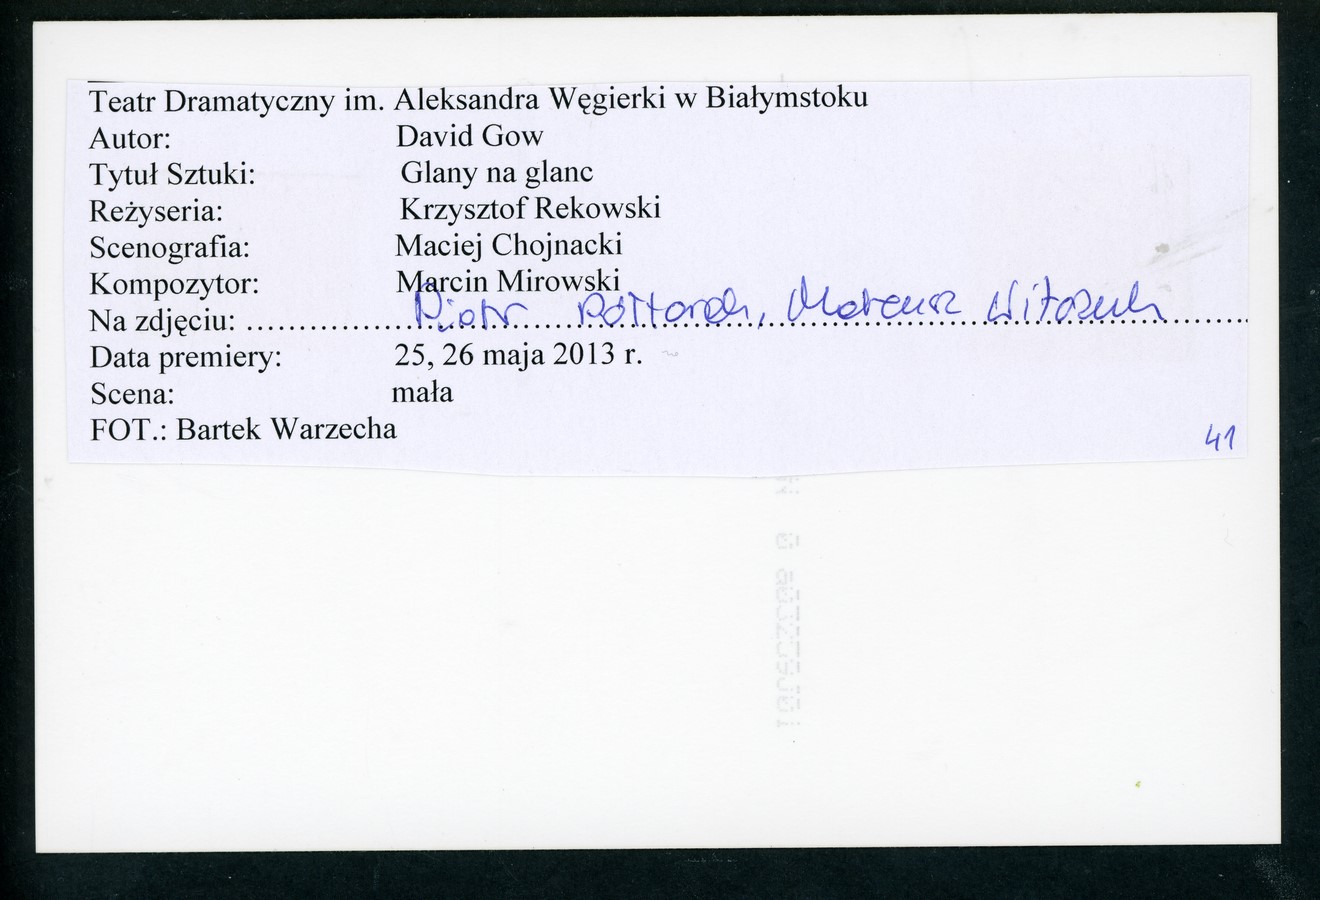 Teatr Dramatyczny im. Aleksandra Węgierki w Białymstoku
Autor: David Gow
Tytuł Sztuki: Glany na glanc
Reżyseria: Krzysztof Rekowski
Scenografia: Maciej Chojnacki
Kompozytor: Marcin Mirowski
Na zdjęciu: Piotr Półtorak, Mateusz Witczuk
Data premiery: 25, 26 maja 2013 r.
Scena: mała
FOT.: Bartek Warzecha
41